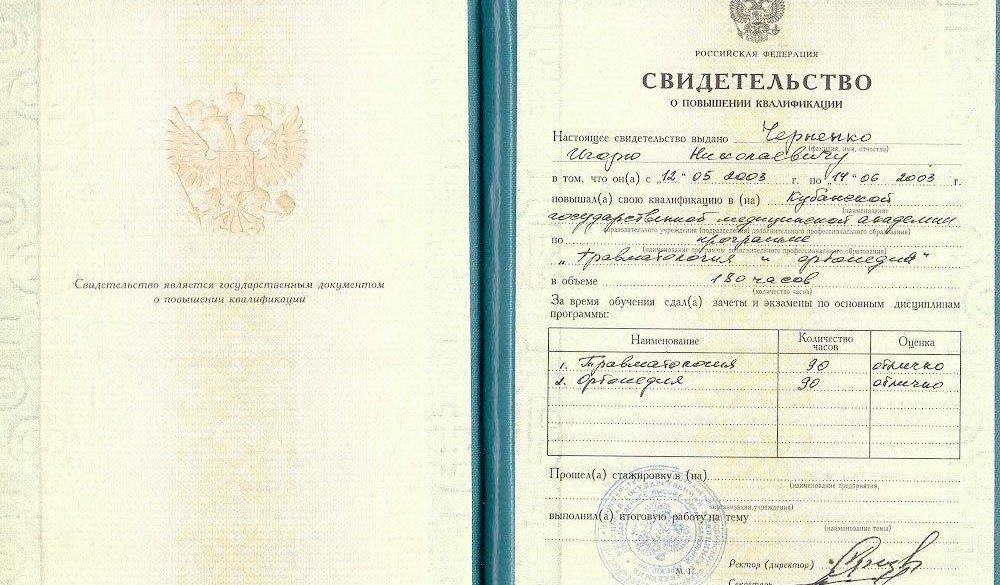 Свидетельство является государственным документом
о повышении квалификации
РОССИЙСКАЯ ФЕДЕРАЦИЯ
СВИДЕТЕЛЬСТВО
О ПОВЫШЕНИИ КВАЛИФИКАЦИИ
Настоящее свидетельство выдано Черненко
(фамилия, имя, отчество)
Игорю Николаевичу
в том, что он(а) с „12“ 05 2003 г. по „14“ 06 2003 г.
повышал(а) свою квалификацию в (на) Кубанской
(наименование
государственной медицинской академии
образовательного учреждения (подразделения) дополнительного профессионального образования)
по программе
(наименование программы дополнительного профессионального образования)
„Травматология и ортопедия“
в объеме 180 часов
(количество часов)
За время обучения сдал(а) зачеты и экзамены по основным дисциплинам
программы:
Наименование Количество часов Оценка
1. Травматология 90 отлично
2. Ортопедия 90 отлично
Прошел(а) стажировку в (на)
(наименование предприятия,
организации, учреждения)
выполнил(а) итоговую работу на тему
(наименование темы)
М.П.
Ректор (директор)
Секретарь